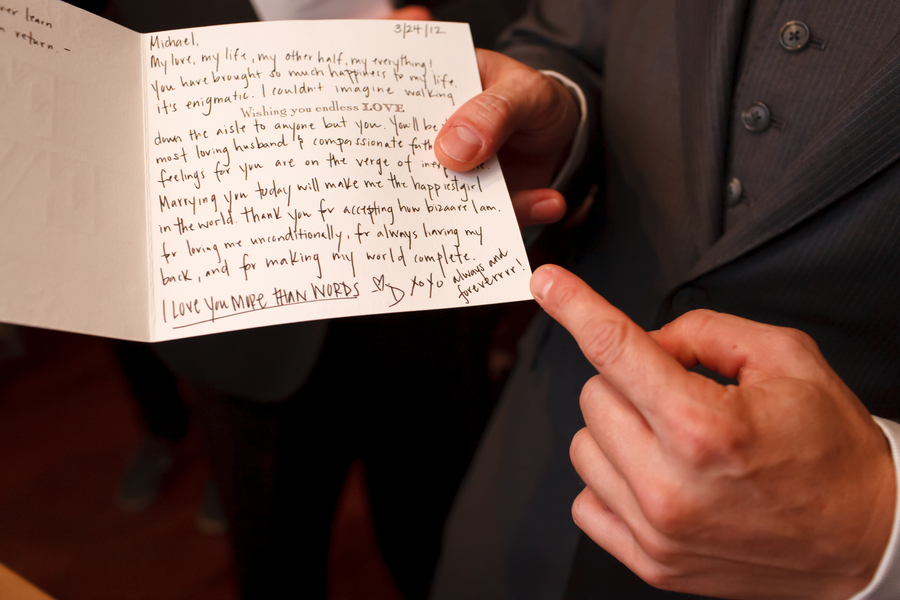 ver learn
return. -
3/24/12
Michael,
My love, my life, my other half, my everything!
You have brought so much happiness to my life.
it's enigmatic. I couldn't imagine walking
Wishing you endless LOVE
down the aisle to anyone but you. You'll be
most loving husband & compassionate
feelings for you are on the verge of
Marrying you today will make me the happiest girl
in the world. Thank you for accepting how bizaare I am.
for loving me unconditionally, for always having my
back, and for making my world complete.
I LOVE YOU MORE THAN WORDS ♡D XOXO always and
foreverrrr!